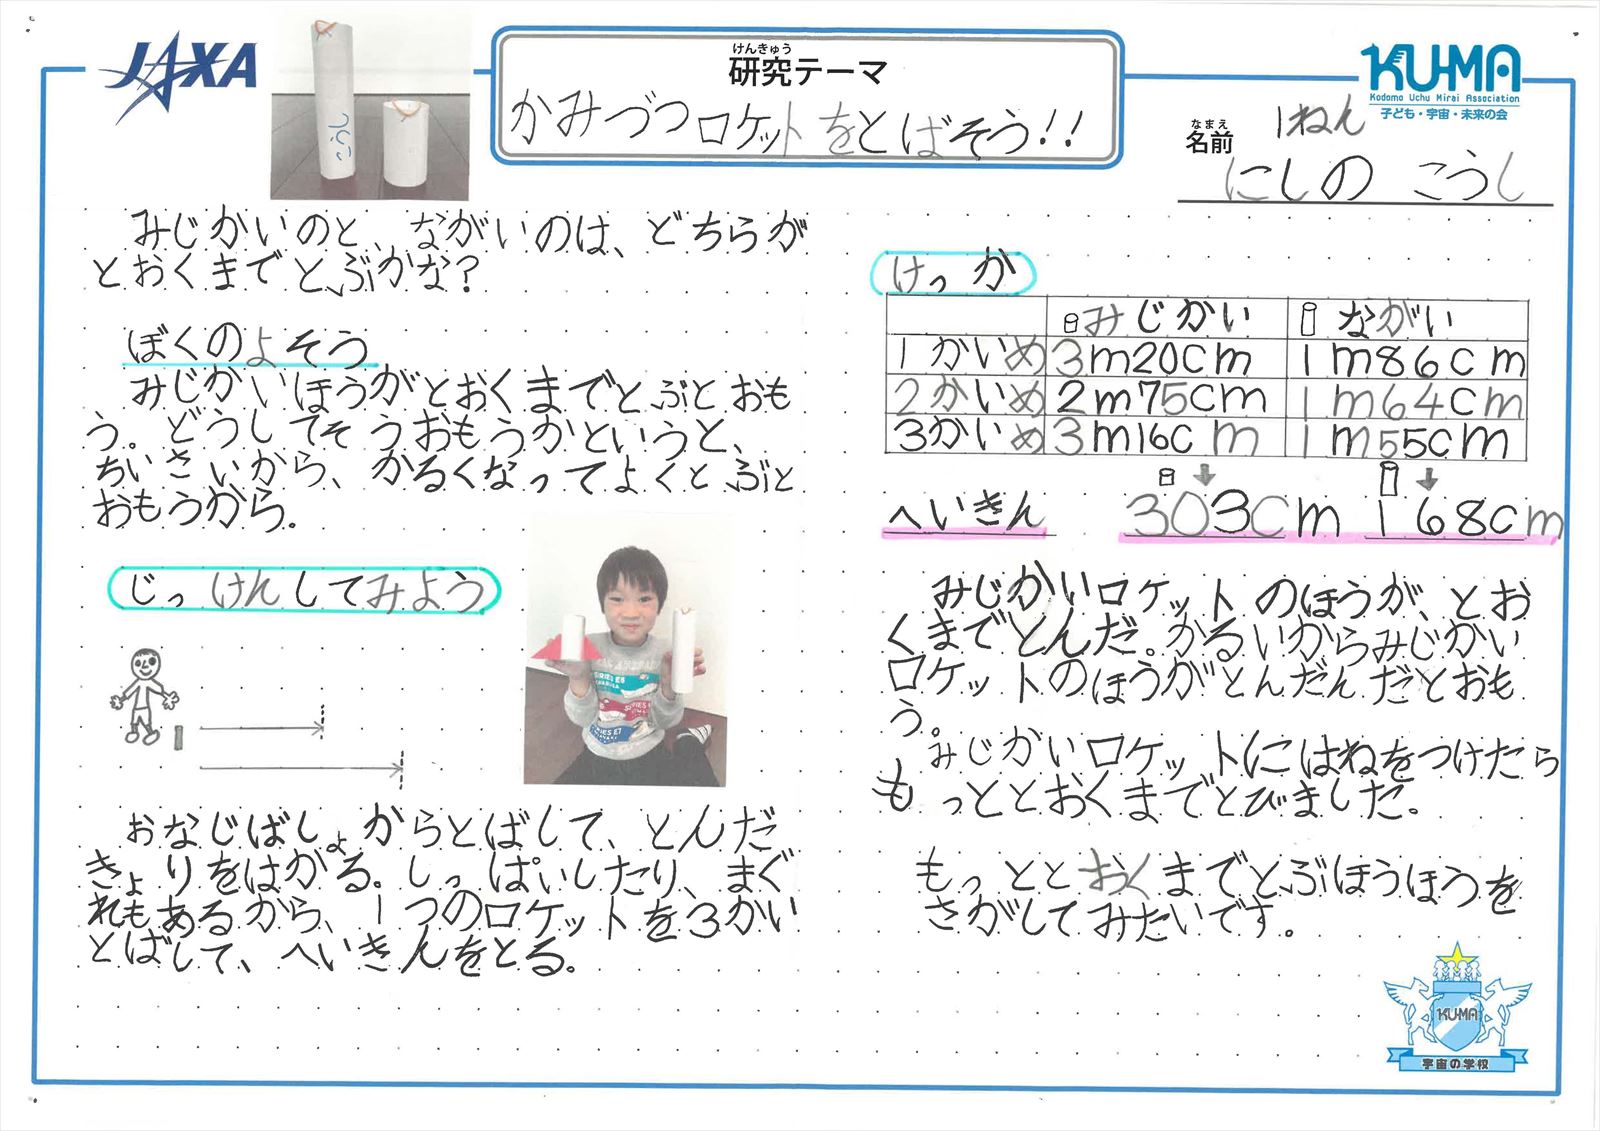 JAXA
けんきゅう
研究テーマ
かみづつロケットをとばそう!!
KUMA
Kodomo Uchu Mirai Association
子ども・宇宙・未来の会
1ねん
なまえ
名前
にしの こうし
みじかいのと、ながいのは、どちらが
とおくまでとぶかな?
ぼくのよそう
みじかいほうがとおくまでとぶとおも
う。どうしてそうおもうかというと、
ちいさいから、かるくなってよくとぶと
おもうから。
じっけんしてみよう
おなじばしょからとばして、とんだ
きょりをはかる。しっぱいしたり、まぐ
れもあるから、1つのロケットを3かい
とばして、へいきんをとる。
けっか
みじかい ながい
1かいめ 3m20cm 1m86cm
2かいめ 2m75cm 1m64cm
3かいめ 3m16cm 1m55cm
へいきん 303cm 168cm
みじかいロケットのほうが、とお
くまでとんだ。かるいからみじかい
ロケットのほうがとんだんだとおも
う。
みじかいロケットにはねをつけたら
もっととおくまでとびました。
もっととおくまでとぶほうほうを
さがしてみたいです。
KUMA
宇宙の学校